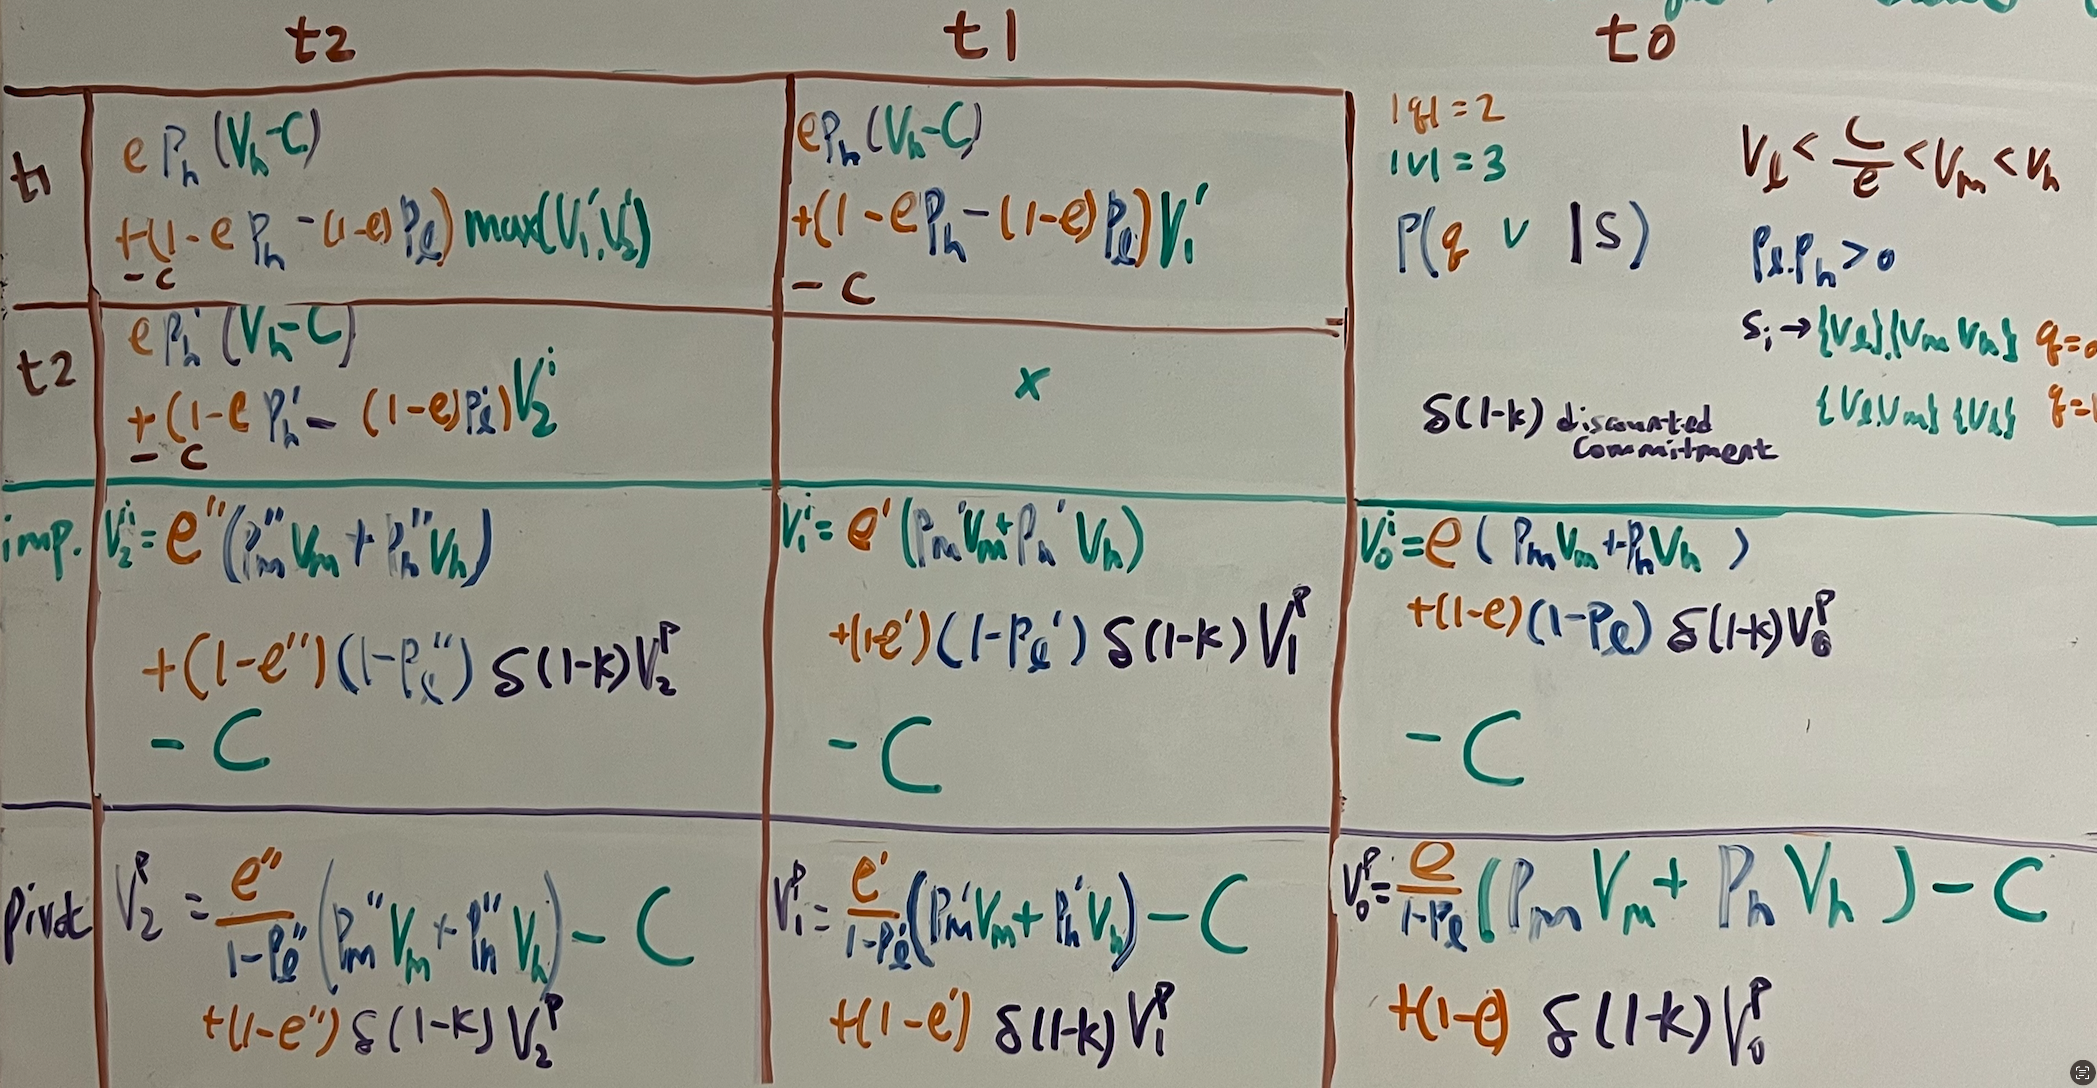 t2 t1 t0
t1
e Ph (Vh-C)
+(1-e Ph -(1-e)Pl) max(V1', V2')
- c
ePh (Vh-C)
+(1-ePh-(1-e)Pl)V1'
- c
|q|=2
|v|=3
P(q v |S)
δ(1-k) discounted
commitment
Vl < C/e < Vm < Vh
Pl.Ph>0
Si → {Vl},{Vm Vh} q=
{Vl,Vm} {Vh} q=
t2
e Ph' (Vh-C)
+(1-e Ph' - (1-e)Pl')V2^i
- c
x
imp.
V2^i = e"(Pm"Vm + Ph"Vh)
+(1-e")(1-Pl") δ(1-k)V2^P
- C
V1^i = e'(Pm'Vm+Ph'Vh)
+(1-e')(1-Pl') δ(1-k)V1^P
- C
V0^i = e (PmVm+PhVh)
+(1-e)(1-Pl) δ(1-k)V0^P
- C
pivot
V2^P = e"/(1-Pl") (Pm"Vm + Ph"Vh) - C
+(1-e") δ(1-k) V2^P
V1^P = e'/(1-Pl') (Pm'Vm+Ph'Vh) - C
+(1-e') δ(1-k) V1^P
V0^P = e/(1-Pl) (Pm Vm + Ph Vh) - C
+(1-e) δ(1-k) V0^P